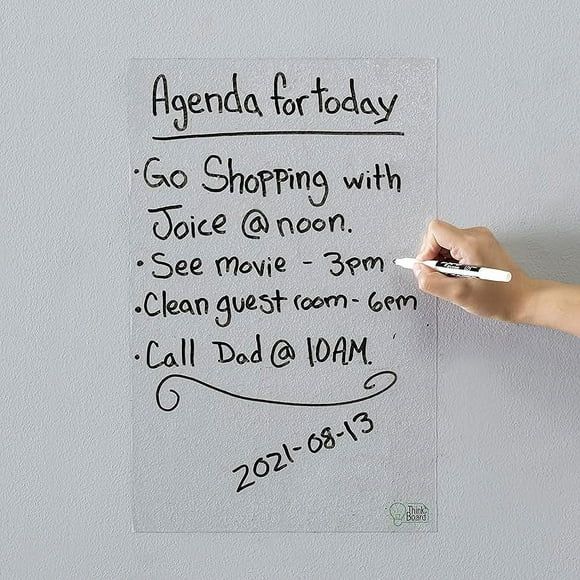 Agenda for today
· Go Shopping with
Joice @ noon.
· See movie - 3pm
· Clean guest room - 6pm
· Call Dad @ 10AM.
2021-08-13
Think
Board